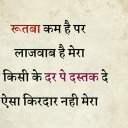 रूतबा कम है पर
लाजवाब है मेरा
किसी के दर पे दस्तक दे
ऐसा किरदार नही मेरा